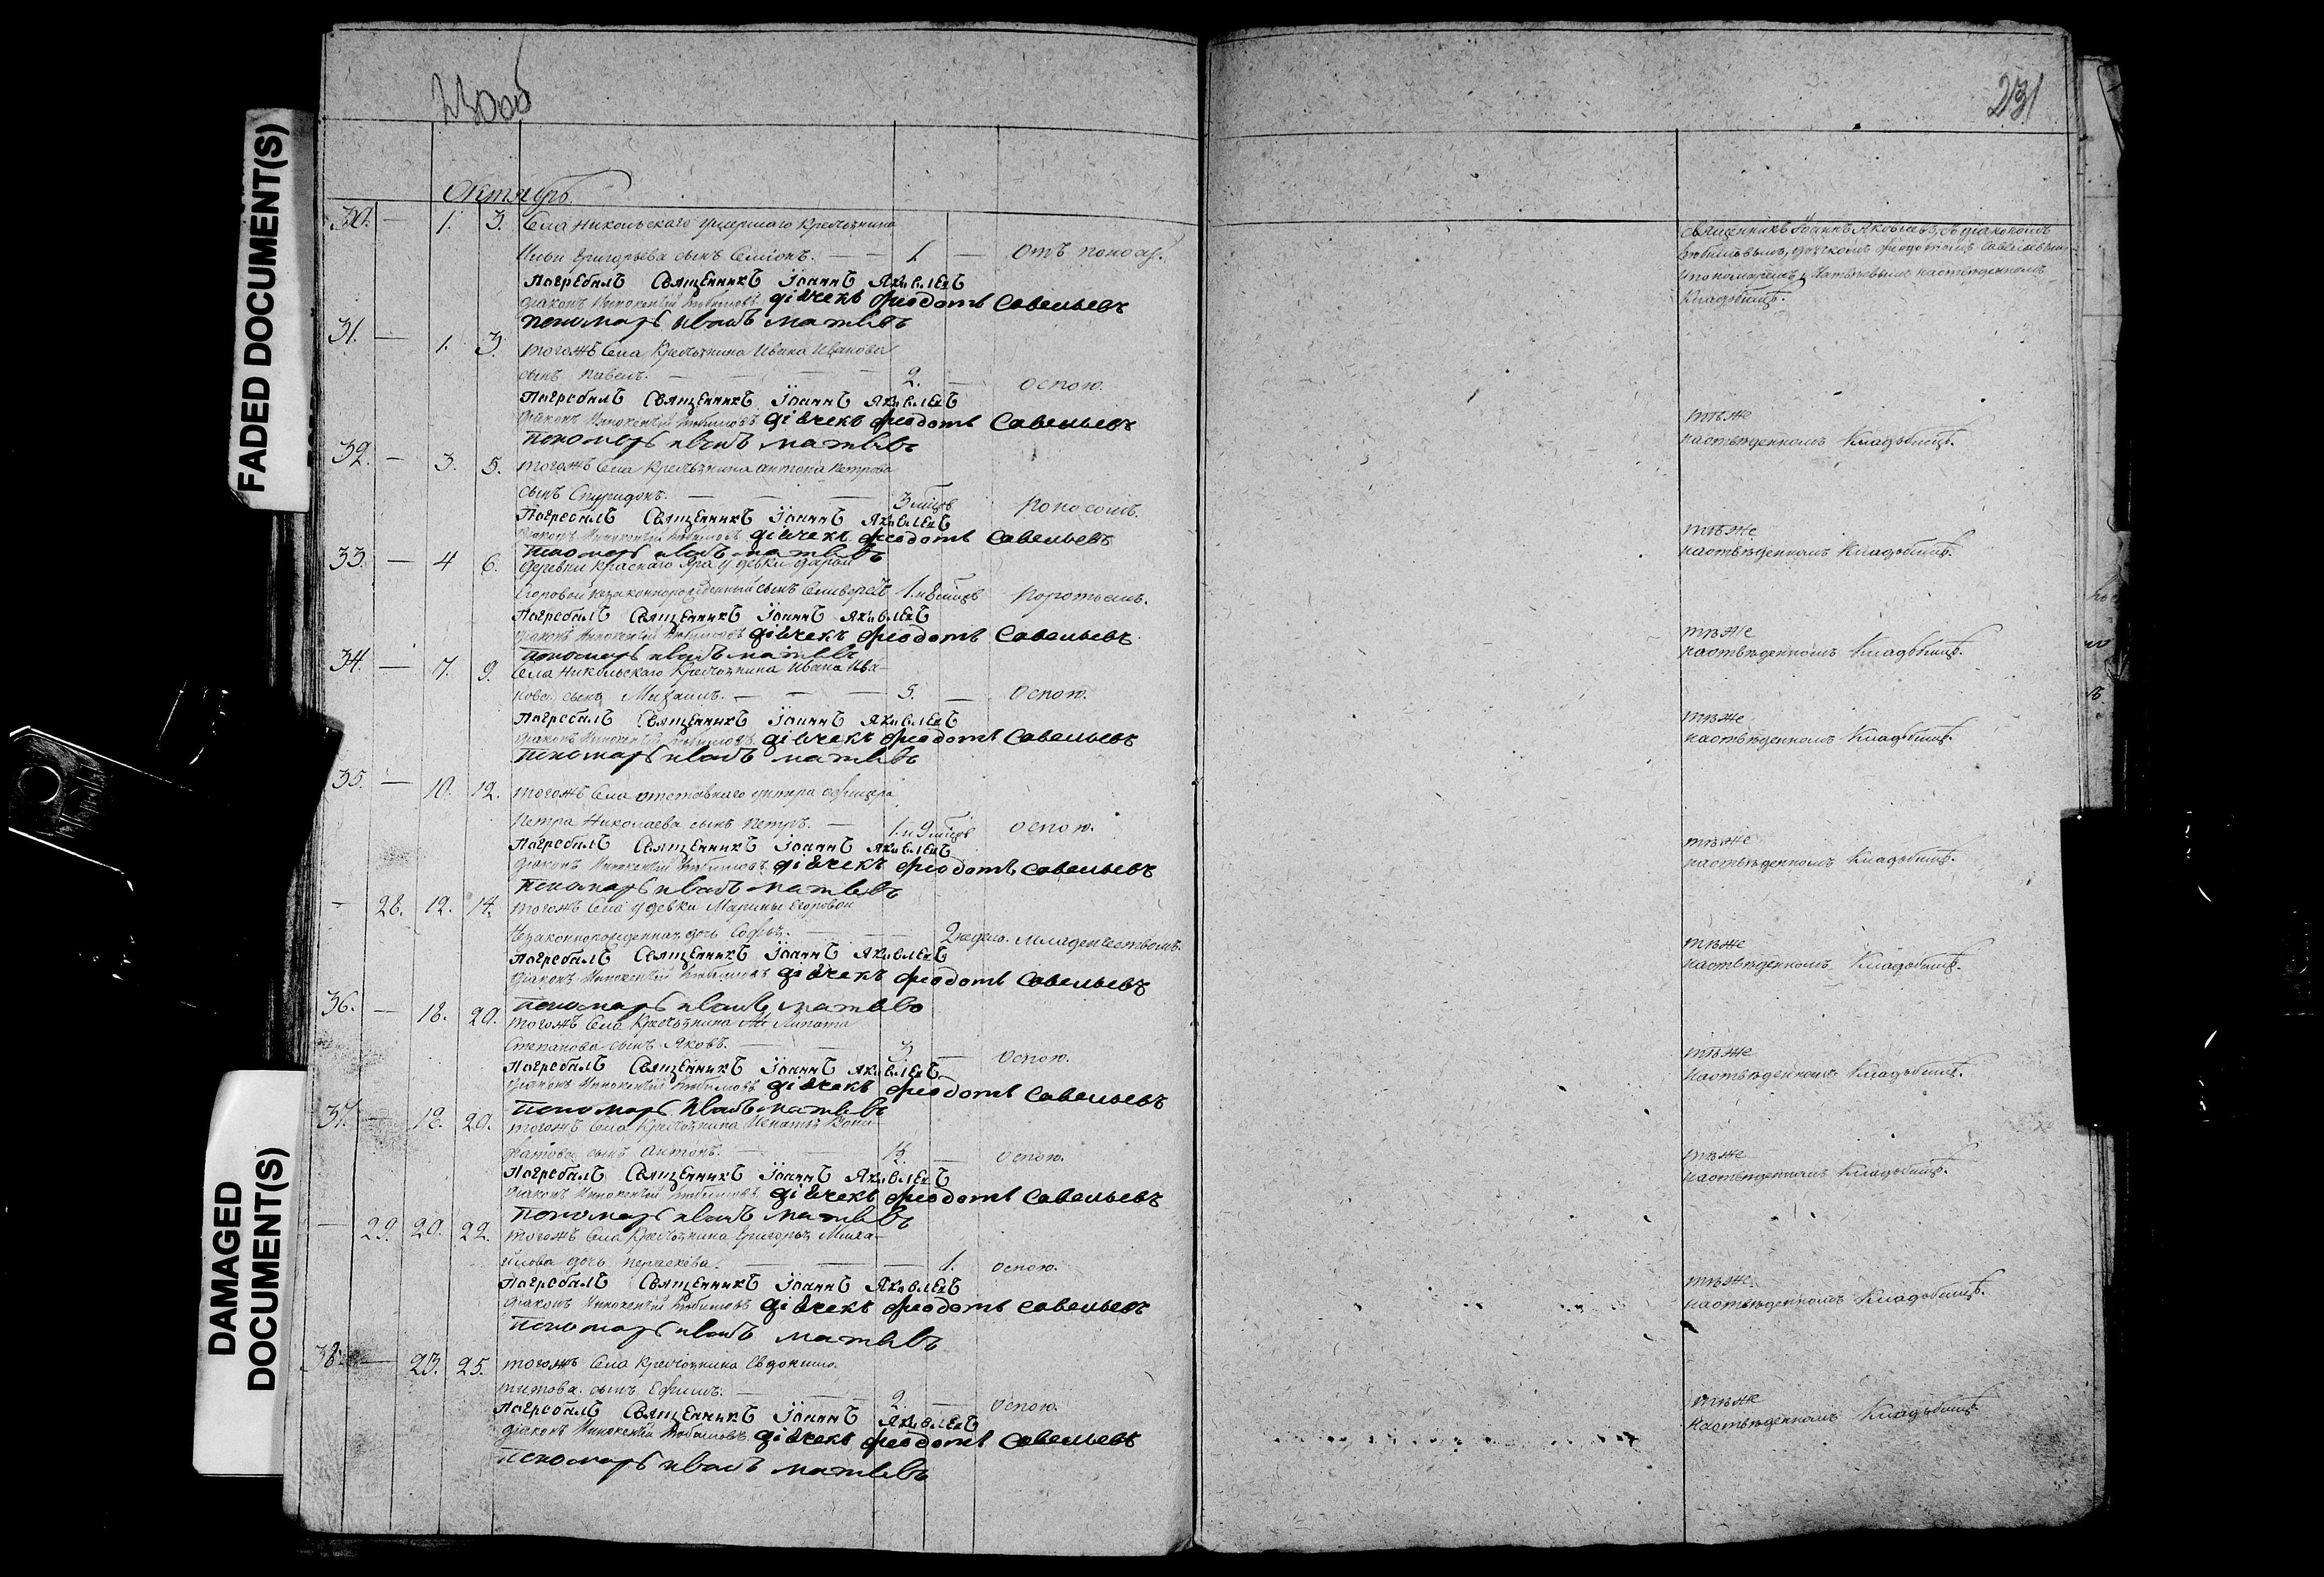 FADED DOCUMENT(S)
DAMAGED DOCUMENT(S)
230об
Октябрь.
30. — 1. 3. Села Никольскаго умершаго крестьянина
Ильи Григорьева сынъ Симіонъ. — — 1. — Отъ поносу.
Погребалъ Священникъ Іоаннъ Яковлевъ
діаконъ Иннокентій Любимовъ дїячекъ Феодотъ Савельевъ
пономарь иванъ матѣевъ
31. — 1. 3. тогожъ Села Крестьянина Ивана Иванова
сынъ Павелъ. — — — 2. — оспою.
Погребалъ Священникъ Іоаннъ Яковлевъ
діаконъ Иннокентій Любимовъ дїячекъ Феодотъ Савельевъ
пономарь иванъ матѣевъ
32. — 3. 5. тогожъ Села Крестьянина Антона Петрова
сынъ Спиридонъ. — — — 3 мцовъ Поносомъ.
Погребалъ Священникъ Іоаннъ Яковлевъ
діаконъ Иннокентій Любимовъ дїячекъ Феодотъ Савельевъ
пономарь иванъ матѣевъ
33. — 4 6. деревни Краснаго Яра у девки Дарьи
Егоровой незаконнорожденный сынъ 1. и 8 мцовъ
Погребалъ Священникъ Іоаннъ Яковлевъ
діаконъ Иннокентій Любимовъ дїячекъ Феодотъ Савельевъ
пономарь иванъ матѣевъ
34. — 7. 9. Села Никольскаго Крестьянина Ивана Ива-
нова сынъ Михаилъ. — — — 5. — Оспою.
Погребалъ Священникъ Іоаннъ Яковлевъ
діаконъ Иннокентій Любимовъ дїячекъ Феодотъ Савельевъ
пономарь иванъ матѣевъ
35. — 10. 12. тогожъ Села отставнаго унтера офицера
Петра Николаева сынъ Петръ. — 1. и 9 мцовъ оспою.
Погребалъ Священникъ Іоаннъ Яковлевъ
діаконъ Иннокентій Любимовъ дїячекъ Феодотъ Савельевъ
пономарь иванъ матѣевъ
— 28. 12. 14. тогожъ Села у девки Марины Егоровой
Незаконнорожденная дочь Софья. — — 2 недель. Младенчествомъ.
Погребалъ Священникъ Іоаннъ Яковлевъ
діаконъ Иннокентій Любимовъ дїячекъ Феодотъ Савельевъ
пономарь иванъ матѣевъ
36. — 18. 20. тогожъ Села Крестьянина Липата
Степанова сынъ Яковъ. — — 3 — Оспою.
Погребалъ Священникъ Іоаннъ Яковлевъ
діаконъ Иннокентій Любимовъ дїячекъ Феодотъ Савельевъ
пономарь иванъ матѣевъ
37. — 18. 20. тогожъ Села Крестьянина Игнатья
сынъ Антонъ. — — — Оспою.
Погребалъ Священникъ Іоаннъ Яковлевъ
діаконъ Иннокентій Любимовъ дїячекъ Феодотъ Савельевъ
пономарь иванъ матѣевъ
— 29. 20. 22. тогожъ Села Крестьянина Григорья Миха-
йлова дочь Параскева. — — — 1. оспою.
Погребалъ Священникъ Іоаннъ Яковлевъ
діаконъ Иннокентій Любимовъ дїячекъ Феодотъ Савельевъ
пономарь иванъ матѣевъ
38. — 23. 25. тогожъ Села Крестьянина Евдокима
титова сынъ Ефимъ. — — 2. — Оспою.
Погребалъ Священникъ Іоаннъ Яковлевъ
діаконъ Иннокентій Любимовъ дїячекъ Феодотъ Савельевъ
пономарь иванъ матѣевъ
231
Священникъ Іоаннъ Яковлевъ, съ діакономъ
Любимовымъ, дьячкомъ Феодотомъ Савельевымъ
и пономаремъ Матѣевымъ наотвѣденномъ
Кладбищѣ.
тѣже
наотвѣденномъ Кладбищѣ.
тѣже
наотвѣденномъ Кладбищѣ.
тѣже
наотвѣденномъ Кладбищѣ.
тѣже
наотвѣденномъ Кладбищѣ.
тѣже
наотвѣденномъ Кладбищѣ.
тѣже
наотвѣденномъ Кладбищѣ.
тѣже
наотвѣденномъ Кладбищѣ.
тѣже
наотвѣденномъ Кладбищѣ.
тѣже
наотвѣденномъ Кладбищѣ.
тѣже
наотвѣденномъ Кладбищѣ.